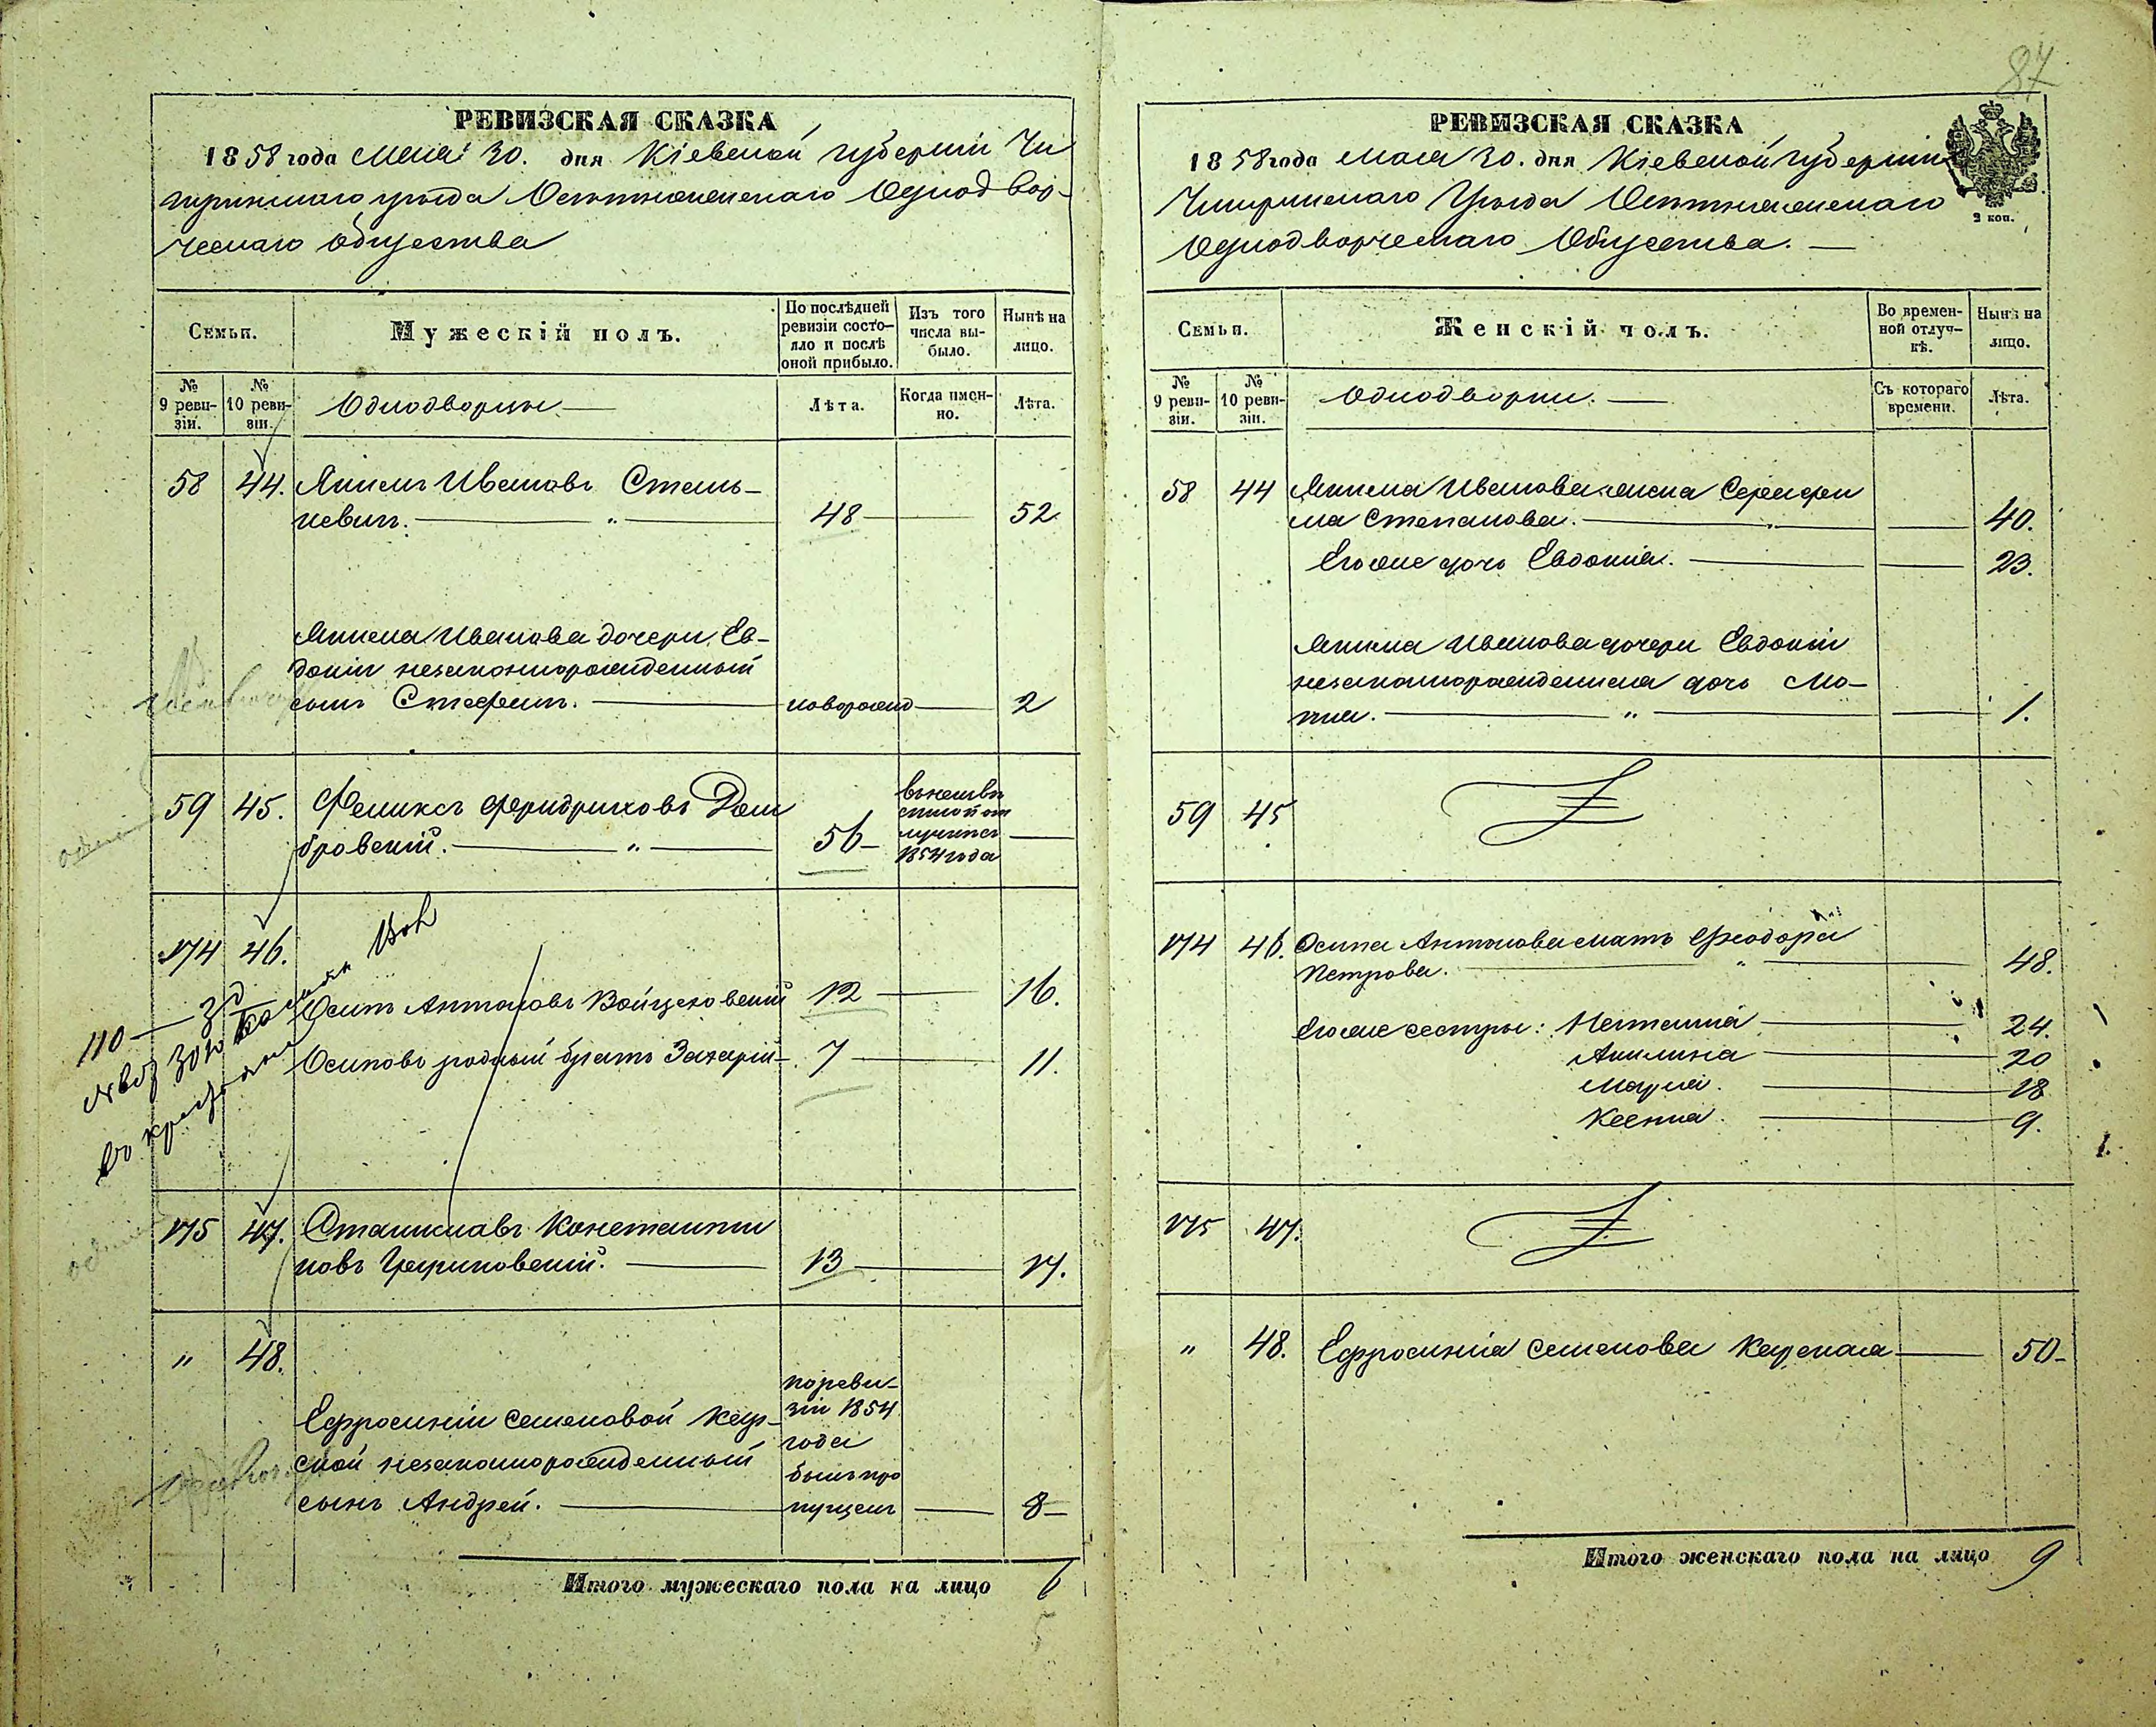 87
РЕВИЗСКАЯ СКАЗКА
1858 года Маія 30. дня Кіевской губерніи Чи
гиринскаго уѣзда Одноднвор-
ческаго общества
Семьи.
Мужескій полъ.
По послѣдней ревизіи состо-яло и послѣ оной прибыло.
Изъ того числа вы-было.
Нынѣ на лицо.
№ 9 реви-зіи.
№ 10 реви-зіи.
Однодворцы.
Лѣта.
Когда имен-но.
Лѣта.
58 44. Якимъ Ивановъ Стань-
кевичъ. " 48 52
Якима Иванова дочери Ев-
докіи незаконнорожденный
сынъ Стефанъ. новорожд 2
59 45. Феликсъ Фридриховъ Дом
бровскій. " 56
1854 года
174 46.
Осипъ Антоновъ Войцеховскій 12 16.
Осиповъ родный братъ Захарій 7 11.
110 — 3
175 47. Станиславъ Константи
новъ 13 17.
" 48.
Ефросиніи Семеновой Кар-
ской незаконнорожденный
сынъ Андрей.
по реви-
зіи 1854
года
былъ про
пущенъ 8
Итого мужескаго пола на лицо 6
5
РЕВИЗСКАЯ СКАЗКА
1858 года Мая 30. дня Кіевской губерніи
Чигиринскаго Уѣзда
Однодворческаго Общества.
2 коп.
Семьи.
Женскій полъ.
Во времен-ной отлуч-кѣ.
Нынѣ на лицо.
№ 9 реви-зіи.
№ 10 реви-зіи.
Однодворки.
Съ котораго времени.
Лѣта.
58 44 Якима Иванова жена Серафи
ма Степанова. 40.
Его же дочь Евдокія. 23.
Якима Иванова дочери Евдокіи
незаконнорожденная дочь Мо-
тря. " 1.
59 45
174 46. Осипа Антонова мать Феодора
Петрова. " 48.
Его же сестры: Наталія 24.
Акилина 20
Марія. 18
Ксенія. 9.
175 47.
" 48. Ефросинія Семенова Карская 50
Итого женскаго пола на лицо 9